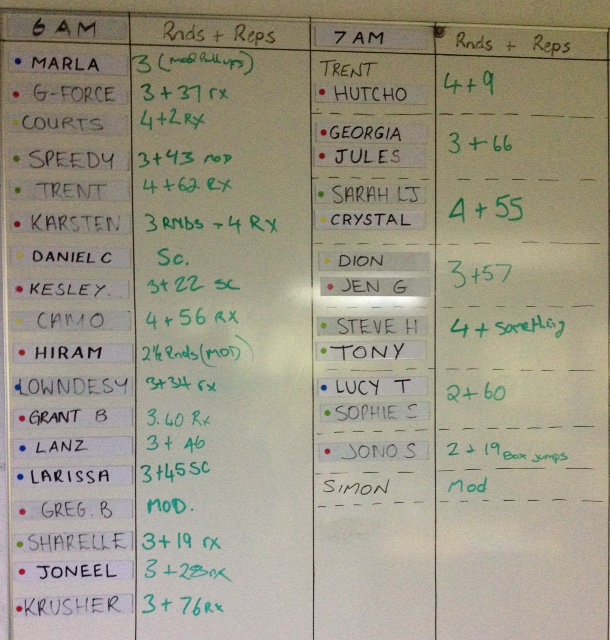 6 AM Rnds + Reps
MARLA 3 (mod Pull ups)
G-FORCE 3 + 37 rx
COURTS 4+2 RX
SPEEDY 3+43 mod
TRENT 4 + 62 RX
KARSTEN 3 RNDS + 4 RX
DANIEL C Sc.
KESLEY. 3+22 sc
CAMO 4 + 56 RX
HIRAM 2½ Rnds (MOD)
LOWNDESY 3+34 rx
GRANT B 3.40 Rx
LANZ 3 + 46
LARISSA 3+45 SC
GREG. B MOD.
SHARELLE 3 + 19 rx
JONEEL 3 + 28 rx
KRUSHER 3 + 76 Rx
7 AM Rnds + Reps
TRENT
HUTCHO 4+9
GEORGIA
JULES 3 + 66
SARAH LJ
CRYSTAL 4 + 55
DION
JEN G 3+57
STEVE H
TONY 4 + Something
LUCY T
SOPHIE S 2+60
JONO S 2 + 19 Box jumps
SIMON Mod